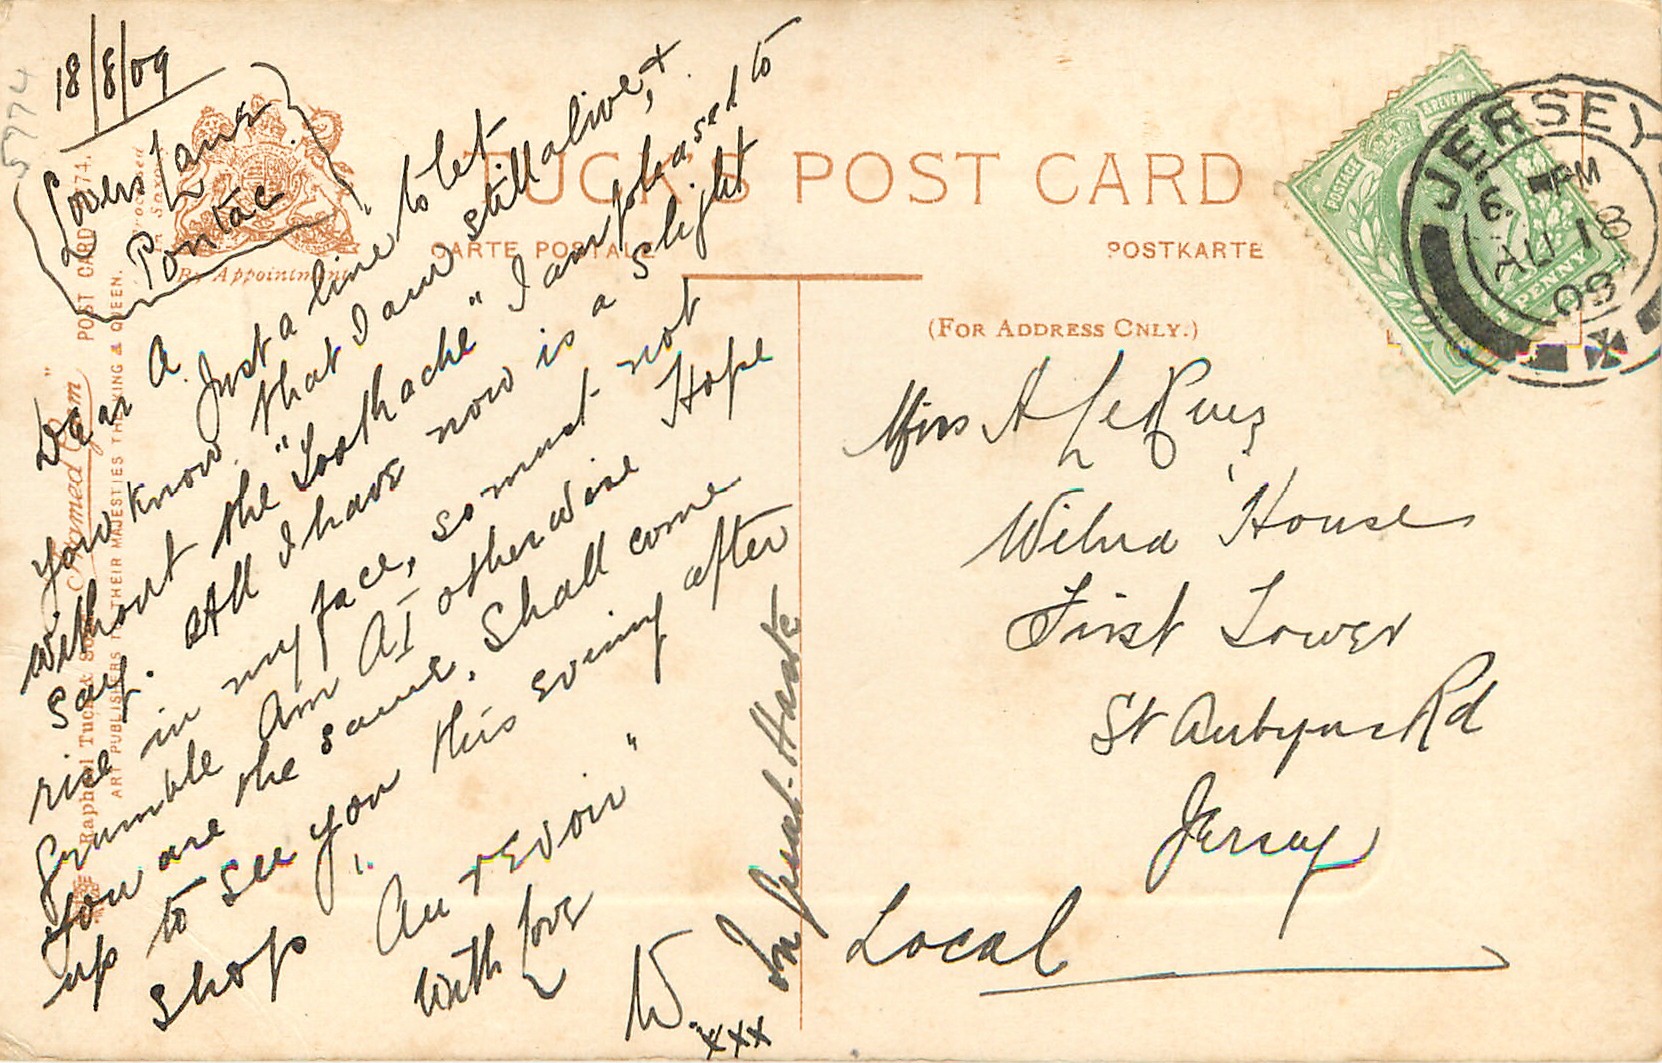 5774
18/8/09
Lovers Lane
Pontac
TUCK'S POST CARD
CARTE POSTALE
POSTKARTE
By Appointment
(FOR ADDRESS ONLY.)
POSTAGE & REVENUE
PENNY
JERSEY
6. PM
AU 18
09
Dear A. Just a line to let
you know that I am still alive, +
without the "Toothache" I am pleased to
say. All I have now is a slight
rise in my face, so must not
grumble Am A1 otherwise Hope
you are the same. Shall come
up to see you this evening after
shop
"Au revoir"
With love
W.
xxx
In Great Haste
Miss A Le
Wilna House
First Tower
St Aubyns Rd
Jersey
Local
Raphael Tuck & Sons' "Framed Gem" POST CARD 774.
ART PUBLISHERS TO THEIR MAJESTIES THE KING & QUEEN.